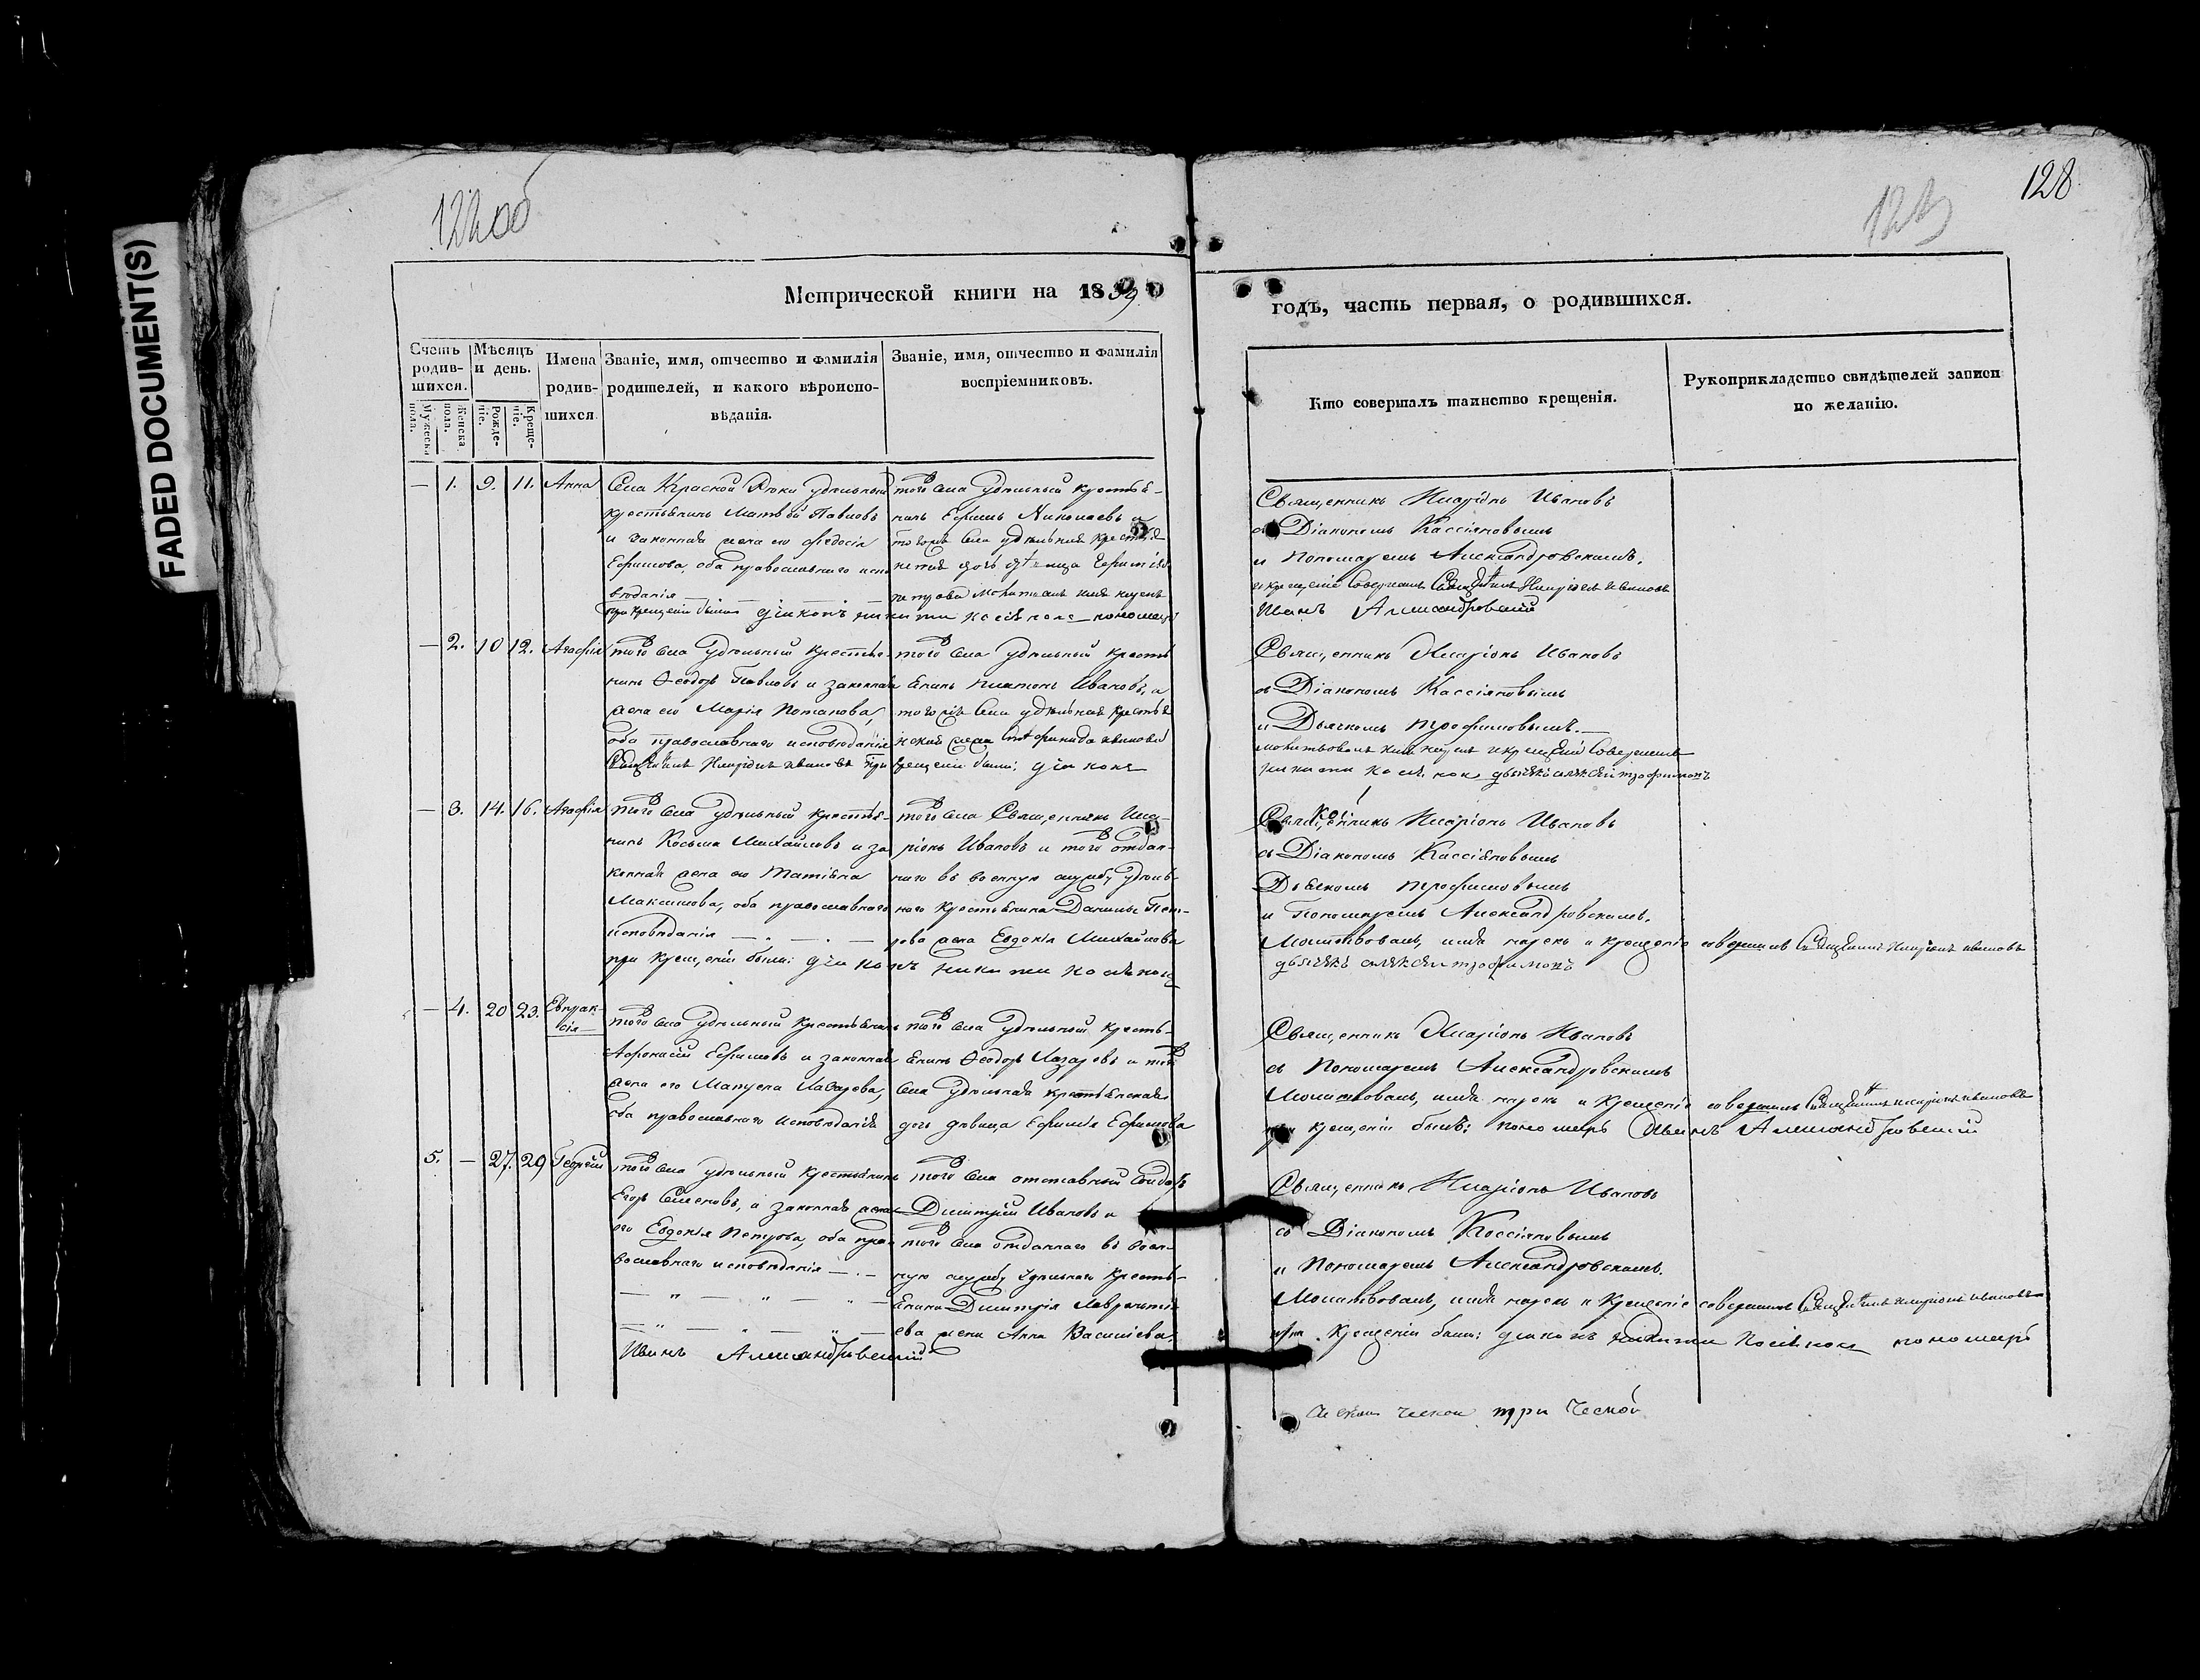 FADED DOCUMENT(S)
122об
128
Метрической книги на 1839
годъ, часть первая, о родившихся.
Счетъ родив-шихся.
Мужеска пола.
Женска пола.
Мѣсяцъ и день.
Рожде-ніе.
Креще-ніе.
Имена родив-шихся
Званіе, имя, отчество и фамилія
родителей, и какого вѣроиспо-
вѣданія.
Званіе, имя, отчество и фамилія
воспріемниковъ.
Кто совершалъ таинство крещенія.
Рукоприкладство свидѣтелей записи
по желанію.
— 1. 9. 11. Анна
Села Красной удѣльный
крестьянинъ Матвѣй Павловъ
и законная жена его Феодосія
Ефимова, оба православнаго испо
вѣданія
при крещеніи были діаконъ
того села удѣльный крестья-
нинъ Ефимъ Николаевъ и
того села удѣльная
Священникъ Иларіонъ Ивановъ
съ Діакономъ Кассіяновымъ
и Пономаремъ Александровскимъ.
и крещеніе совершалъ Иларіонъ Ивановъ
Иванъ Александровскій
— 2. 10 12. Агафія
того села удѣльный крестья-
нинъ Ѳеодоръ Павловъ и законная
жена его Марія Потапова,
оба православнаго исповѣданія
Иларіонъ Ивановъ при
того села удѣльный кресть
янинъ Ивановъ, и
того села удѣльная
крещеніи были: діаконъ
Священникъ Иларіонъ Ивановъ
съ Діакономъ Кассіяновымъ
и Дьячкомъ Трофимовымъ.
— 3. 14. 16. Агафія
того села удѣльный крестья-
нинъ Косьма Михайловъ и за
конная жена его Татіяна
Максимова, оба православнаго
исповѣданія
при крещеніи были: діаконъ
того села Священникъ Ила-
ріонъ Ивановъ и того отдан-
наго въ военную службу удѣль-
наго крестьянина Данилы Пет-
рова жена Евдокія Михайлова
Священникъ Иларіонъ Ивановъ
съ Діакономъ Кассіяновымъ
Дьячкомъ Трофимовымъ
и Пономаремъ Александровскимъ.
Молитвовалъ, имя нарекъ и крещеніе совершалъ Иларіонъ Ивановъ
— 4. 20 23. Евпрак-
сія
того села удѣльный крестьянинъ
Афонасій Ефимовъ и законная
жена его Лазарева,
оба православнаго исповѣданія
того села удѣльный кресть-
янинъ Ѳеодоръ Лазаревъ и той
села удѣльная крестьянская
дочь дѣвица Ефимія Ефимова
Священникъ Иларіонъ Ивановъ
съ Пономаремъ Александровскимъ
Молитвовалъ, имя нарекъ и крещеніе совершалъ Иларіонъ Ивановъ
при крещеніи былъ: пономарь Иванъ Александровскій
5. — 27. 29 Георгій
того села удѣльный крестьянинъ
Егоръ Семеновъ, и законная жена
его Евдокія Петрова, оба пра-
вославнаго исповѣданія —
Иванъ Александровскій
того села отставный солдатъ
Димитрій Ивановъ и
того села отданнаго въ воен-
ную службу удѣльнаго кресть-
янина Димитрія Лаврентіе
ева жена Анна Васильева.
Священникъ Иларіонъ Ивановъ
съ Діакономъ Кассіяновымъ
и Пономаремъ Александровскимъ.
Молитвовалъ, имя нарекъ и крещеніе совершалъ Иларіонъ Ивановъ
при крещеніи были: діаконъ пономарь